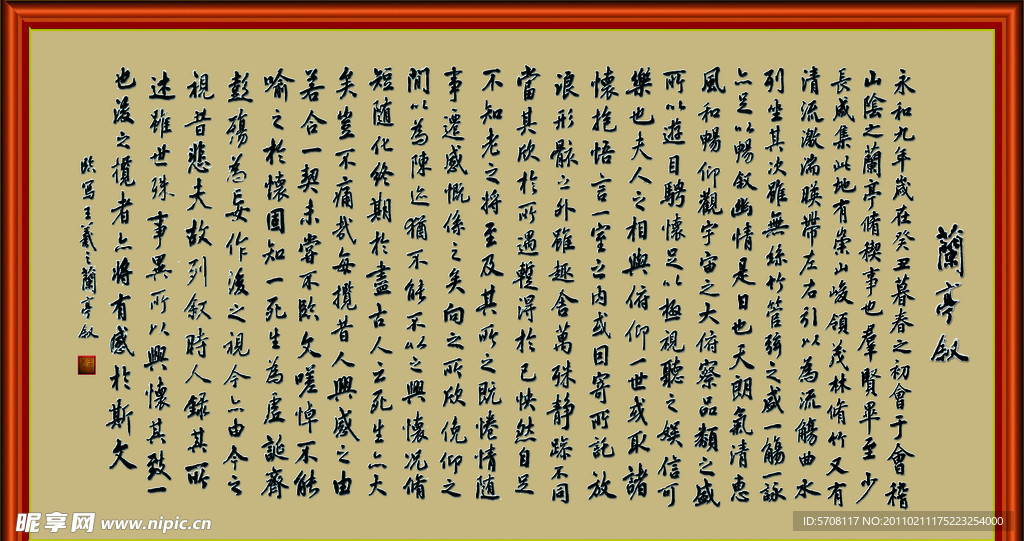 蘭亭叙
永和九年歲在癸丑暮春之初會于會稽
山陰之蘭亭脩稧事也羣賢畢至少
長咸集此地有崇山峻領茂林脩竹又有
清流激湍暎帶左右引以為流觴曲水
列坐其次雖無絲竹管弦之盛一觴一詠
亦足以暢叙幽情是日也天朗氣清惠
風和暢仰觀宇宙之大俯察品類之盛
所以遊目騁懷足以極視聽之娛信可
樂也夫人之相與俯仰一世或取諸
懷抱悟言一室之內或因寄所託放
浪形骸之外雖趣舍萬殊静躁不同
當其欣於所遇蹔得於己怏然自足
不知老之將至及其所之既惓情隨
事遷感慨係之矣向之所欣俛仰之
閒以為陳迹猶不能不以之興懷況脩
短隨化終期於盡古人云死生亦大
矣豈不痛哉每攬昔人興感之由
若合一契未嘗不臨文嗟悼不能
喻之於懷固知一死生為虛誕齊
彭殤為妄作後之視今亦由今之
視昔悲夫故列叙時人錄其所
述雖世殊事異所以興懷其致一
也後之攬者亦將有感於斯文
臨写王羲之蘭亭叙
昵享网 www.nipic.cn
ID:5708117 NO:20110211175223254000